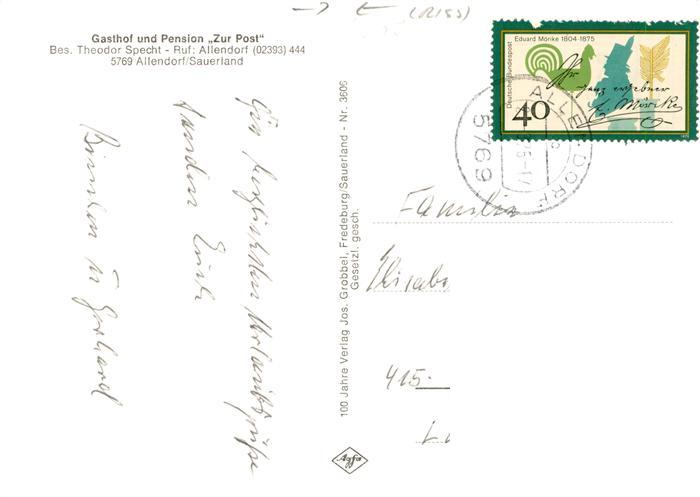 → ← (RISS)
Gasthof und Pension „Zur Post"
Bes. Theodor Specht - Ruf: Allendorf (02393) 444
5769 Allendorf/Sauerland
Deutsche Bundespost
Eduard Mörike 1804-1875
Ihr
ganz ergebner
E. Mörike
40
ALLENDORF
5769
Die herzlichsten Urlaubsgrüße
senden Euch
und Gerhard
100 Jahre Verlag Jos. Grobbel, Fredeburg/Sauerland - Nr. 3606
Gesetzl. gesch.
Agfa
Familie
415